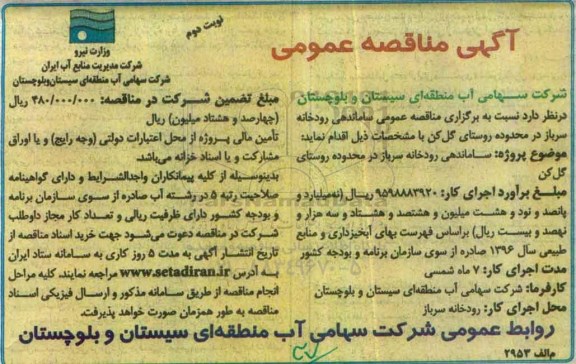 آگهی مناقصه عمومی
نوبت دوم
وزارت نیرو
شرکت مدیریت منابع آب ایران
شرکت سهامی آب منطقه‌ای سیستان‌وبلوچستان
شرکت سهامی آب منطقه‌ای سیستان و بلوچستان
درنظر دارد نسبت به برگزاری مناقصه عمومی ساماندهی رودخانه
سرباز در محدوده روستای گل‌کن با مشخصات ذیل اقدام نماید:
موضوع پروژه: ساماندهی رودخانه سرباز در محدوده روستای
گل‌کن
مبلغ برآورد اجرای کار: ۹۵۹۸۸۸۳۹۲۰ ریال (نه‌میلیارد و
پانصد و نود و هشت میلیون و هشتصد و هشتاد و سه هزار و
نهصد و بیست ریال) براساس فهرست بهای آبخیزداری و منابع
طبیعی سال ۱۳۹۶ صادره از سوی سازمان برنامه و بودجه کشور
مدت اجرای کار: ۷ ماه شمسی
کارفرما: شرکت سهامی آب منطقه‌ای سیستان و بلوچستان
محل اجرای کار: رودخانه سرباز
مبلغ تضمین شرکت در مناقصه: ۴۸۰/۰۰۰/۰۰۰ ریال
(چهارصد و هشتاد میلیون) ریال
تأمین مالی پروژه از محل اعتبارات دولتی (وجه رایج) و یا اوراق
مشارکت و یا اسناد خزانه می‌باشد.
بدینوسیله از کلیه پیمانکاران واجدالشرایط و دارای گواهینامه
صلاحیت رتبه ۵ در رشته آب صادره از سوی سازمان برنامه
و بودجه کشور دارای ظرفیت ریالی و تعداد کار مجاز داوطلب
شرکت در مناقصه دعوت می‌شود جهت خرید اسناد مناقصه از
تاریخ انتشار آگهی به مدت ۵ روز کاری به سامانه ستاد ایران
به آدرس www.setadiran.ir مراجعه نمایند. کلیه مراحل
انجام مناقصه از طریق سامانه مذکور و ارسال فیزیکی اسناد
مناقصه به طور همزمان صورت خواهد پذیرفت.
روابط عمومی شرکت سهامی آب منطقه‌ای سیستان و بلوچستان
م‌الف ۲۹۵۳